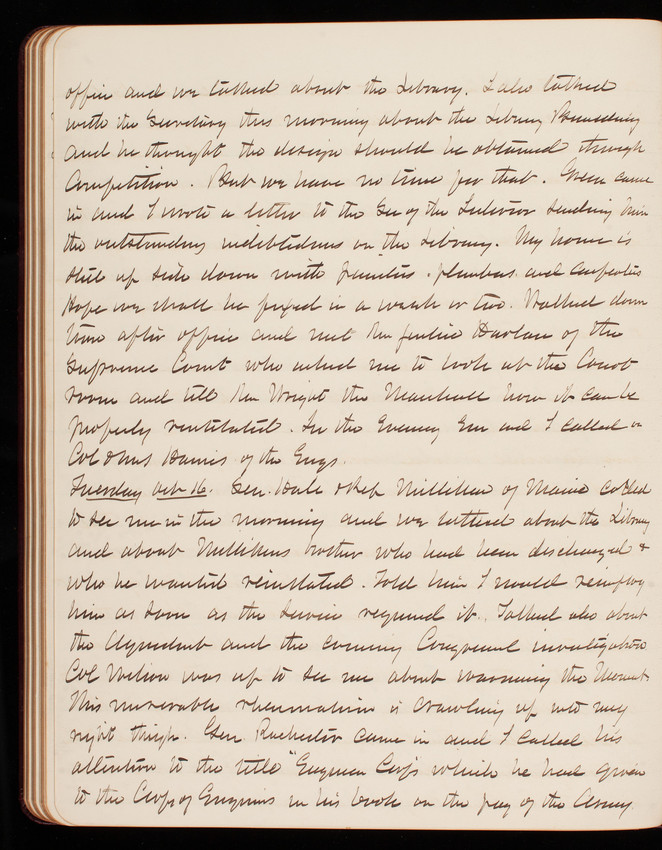 office and we talked about the Library. I also talked
with the Secretary this morning about the Library Building
and he thought the design should be obtained through
Competition. But we have no time for that. Green came
in and I wrote a letter to the Sec of the Interior sending him
the outstanding indebtedness on the Library. My home is
still up side down with painters, plumbers and carpenters
Hope we shall be fixed in a week or two. Walked down
town after office and met Mr Justice Harlan of the
Supreme Court who asked me to look at the Court
room and tell Mr Wright the Marshall how it can be
properly ventilated. In the Evening Em and I called on
Col & Mrs Harris of the Engs.
Tuesday Oct 16. Sen. Hale & Rep Milliken of Maine called
to see me in the morning and we talked about the Library
and about Millikens brother who had been discharged &
who he wanted reinstated. Told him I would reemploy
him as soon as the service required it. Talked also about
the Aqueduct and the coming Congressnl investigation
Col Wilson was up to see me about warming the Monut.
This miserable rheumatism is crawling up into my
right thigh. Gen. Rochester came in and I called his
attention to the title "Engineer Corps which he had given
to the Corps of Engineers in his book on the pay of the Army.